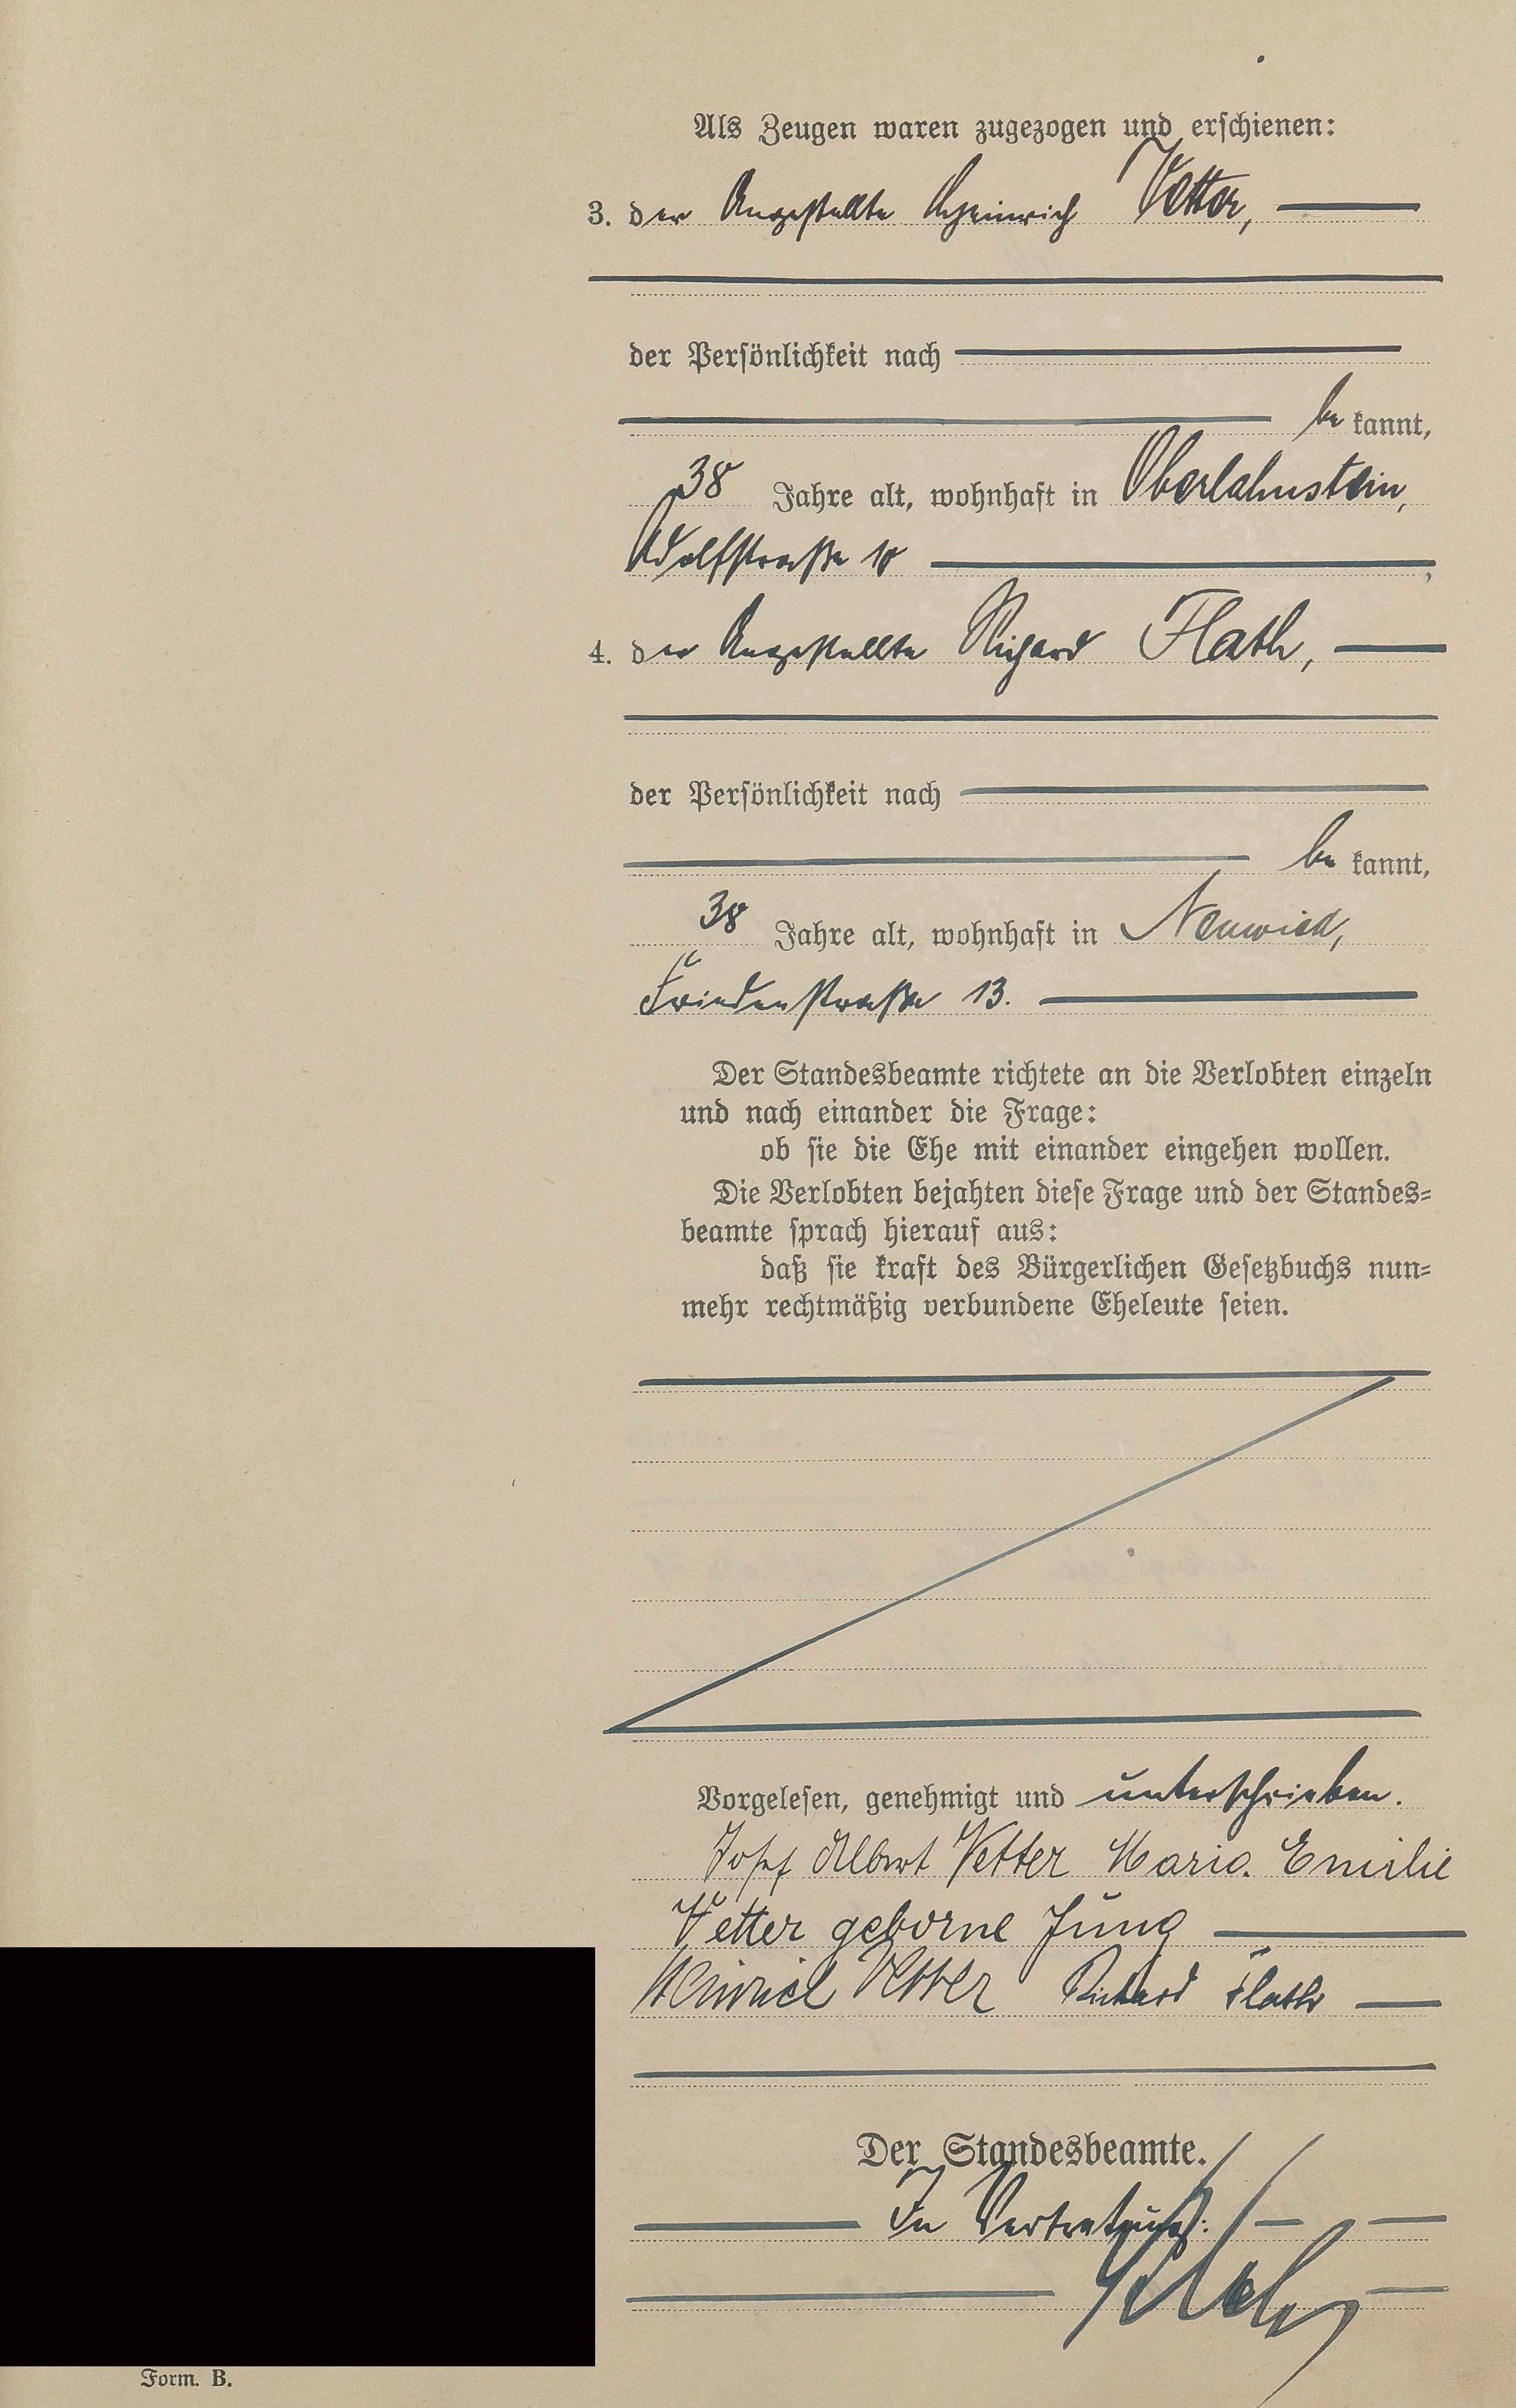 Als Zeugen waren zugezogen und erschienen:
3. der Angestellte Heinrich Vetter,
der Persönlichkeit nach
be kannt,
38 Jahre alt, wohnhaft in Oberlahnstein,
Adolfstraße 10
4. der Angestellte Richard Flath,
der Persönlichkeit nach
be kannt,
38 Jahre alt, wohnhaft in Neuwied,
Friedenstraße 13.
Der Standesbeamte richtete an die Verlobten einzeln
und nach einander die Frage:
ob sie die Ehe mit einander eingehen wollen.
Die Verlobten bejahten diese Frage und der Standes-
beamte sprach hierauf aus:
daß sie kraft des Bürgerlichen Gesetzbuchs nun-
mehr rechtmäßig verbundene Eheleute seien.
Vorgelesen, genehmigt und unterschrieben.
Josef Albert Vetter Maria Emilie
Vetter geborne Jung
Heinrich Vetter Richard Flath
Der Standesbeamte.
In Vertretung:
Form. B.